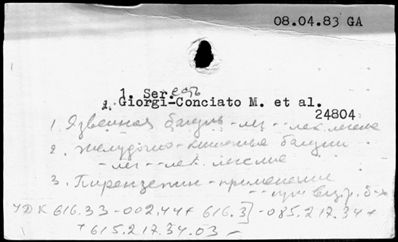 08.04.83 GA
1. Ser.
2. Giorgi-Conciato M. et al.
24804
1. Язвенная болезнь - лз - лек. лечение
2. Желудочно-кишечные болезни
- лз - лек. лечение
3. Пирензепин - применение
при
УДК 616.33-002.44+616.3]-085.217.34+
+615.217.34.03-